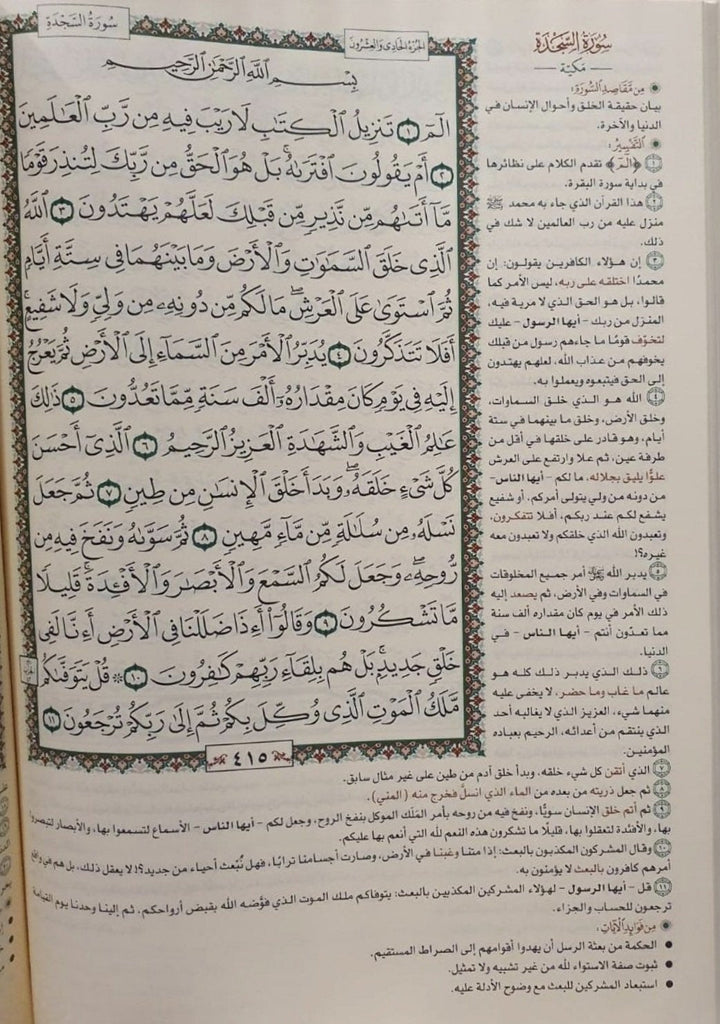 سُورَةُ السَّجْدَةِ
الجُزْءُ الحَادِي وَالعِشْرُونَ
بِسْمِ ٱللَّهِ ٱلرَّحْمَٰنِ ٱلرَّحِيمِ
الٓمٓ ١ تَنزِيلُ ٱلْكِتَٰبِ لَا رَيْبَ فِيهِ مِن رَّبِّ ٱلْعَٰلَمِينَ
٢ أَمْ يَقُولُونَ ٱفْتَرَىٰهُ ۚ بَلْ هُوَ ٱلْحَقُّ مِن رَّبِّكَ لِتُنذِرَ قَوْمًا
مَّآ أَتَىٰهُم مِّن نَّذِيرٍ مِّن قَبْلِكَ لَعَلَّهُمْ يَهْتَدُونَ ٣ ٱللَّهُ
ٱلَّذِى خَلَقَ ٱلسَّمَٰوَٰتِ وَٱلْأَرْضَ وَمَا بَيْنَهُمَا فِى سِتَّةِ أَيَّامٍ
ثُمَّ ٱسْتَوَىٰ عَلَى ٱلْعَرْشِ ۖ مَا لَكُم مِّن دُونِهِۦ مِن وَلِىٍّ وَلَا شَفِيعٍ ۚ
أَفَلَا تَتَذَكَّرُونَ ٤ يُدَبِّرُ ٱلْأَمْرَ مِنَ ٱلسَّمَآءِ إِلَى ٱلْأَرْضِ ثُمَّ يَعْرُجُ
إِلَيْهِ فِى يَوْمٍ كَانَ مِقْدَارُهُۥٓ أَلْفَ سَنَةٍ مِّمَّا تَعُدُّونَ ٥ ذَٰلِكَ
عَٰلِمُ ٱلْغَيْبِ وَٱلشَّهَٰدَةِ ٱلْعَزِيزُ ٱلرَّحِيمُ ٦ ٱلَّذِىٓ أَحْسَنَ
كُلَّ شَىْءٍ خَلَقَهُۥ ۖ وَبَدَأَ خَلْقَ ٱلْإِنسَٰنِ مِن طِينٍ ٧ ثُمَّ جَعَلَ
نَسْلَهُۥ مِن سُلَٰلَةٍ مِّن مَّآءٍ مَّهِينٍ ٨ ثُمَّ سَوَّىٰهُ وَنَفَخَ فِيهِ مِن
رُّوحِهِۦ ۖ وَجَعَلَ لَكُمُ ٱلسَّمْعَ وَٱلْأَبْصَٰرَ وَٱلْأَفْـِٔدَةَ ۚ قَلِيلًا
مَّا تَشْكُرُونَ ٩ وَقَالُوٓا۟ أَءِذَا ضَلَلْنَا فِى ٱلْأَرْضِ أَءِنَّا لَفِى
خَلْقٍ جَدِيدٍۭ ۚ بَلْ هُم بِلِقَآءِ رَبِّهِمْ كَٰفِرُونَ ١٠ ۞ قُلْ يَتَوَفَّىٰكُم
مَّلَكُ ٱلْمَوْتِ ٱلَّذِى وُكِّلَ بِكُمْ ثُمَّ إِلَىٰ رَبِّكُمْ تُرْجَعُونَ ١١
٤١٥
سُورَةُ السَّجْدَةِ
مَكِيَّة
مِن مَّقَاصِدِ السُّورَةِ:
بيان حقيقة الخلق وأحوال الإنسان في
الدنيا والآخرة.
التَّفْسِيرُ:
١ ﴿الٓمٓ﴾ تقدم الكلام على نظائرها
في بداية سورة البقرة.
٢ هذا القرآن الذي جاء به محمد ﷺ
منزل عليه من رب العالمين لا شك في
ذلك.
٣ إن هؤلاء الكافرين يقولون: إن
محمدًا اختلقه على ربه، ليس الأمر كما
قالوا، بل هو الحق الذي لا مرية فيه،
المنزل من ربك - أيها الرسول - عليك
لتخوّف قومًا ما جاءهم رسول من قبلك
يخوفهم من عذاب الله، لعلهم يهتدون
إلى الحق فيتبعوه ويعملوا به.
٤ الله هو الذي خلق السماوات،
وخلق الأرض، وخلق ما بينهما في ستة
أيام، وهو قادر على خلقها في أقل من
طرفة عين، ثم علا وارتفع على العرش
علوًّا يليق بجلاله، ما لكم - أيها الناس-
من دونه من ولي يتولى أمركم، أو شفيع
يشفع لكم عند ربكم، أفلا تتفكرون،
وتعبدون الله الذي خلقكم ولا تعبدون معه
غيره؟!
٥ يدبر الله ﷻ أمر جميع المخلوقات
في السماوات وفي الأرض، ثم يصعد إليه
ذلك الأمر في يوم كان مقداره ألف سنة
مما تعدّون أنتم - أيها الناس - في
الدنيا.
٦ ذلك الذي يدبر ذلك كله هو
عالم ما غاب وما حضر، لا يخفى عليه
منهما شيء، العزيز الذي لا يغالبه أحد
الذي ينتقم من أعدائه، الرحيم بعباده
المؤمنين.
٧ الذي أتقن كل شيء خلقه، وبدأ خلق آدم من طين على غير مثال سابق.
٨ ثم جعل ذريته من بعده من الماء الذي انسلّ فخرج منه (المني).
٩ ثم أتم خلق الإنسان سويًّا، ونفخ فيه من روحه بأمر المَلَك الموكل بنفخ الروح، وجعل لكم - أيها الناس - الأسماع لتسمعوا بها، والأبصار لتبصروا
بها، والأفئدة لتعقلوا بها، قليلًا ما تشكرون هذه النعم لله التي أنعم بها عليكم.
١٠ وقال المشركون المكذبون بالبعث: إذا متنا وغبنا في الأرض، وصارت أجسامنا ترابًا، فهل نُبْعث أحياء من جديد؟! لا يعقل ذلك، بل هم في واقع
أمرهم كافرون بالبعث لا يؤمنون به.
١١ قل - أيها الرسول - لهؤلاء المشركين المكذبين بالبعث: يتوفاكم ملك الموت الذي فوَّضه الله بقبض أرواحكم، ثم إلينا وحدنا يوم القيامة
ترجعون للحساب والجزاء.
مِن فَوَائِدِ الْآيَاتِ:
• الحكمة من بعثة الرسل أن يهدوا أقوامهم إلى الصراط المستقيم.
• ثبوت صفة الاستواء لله من غير تشبيه ولا تمثيل.
• استبعاد المشركين للبعث مع وضوح الأدلة عليه.